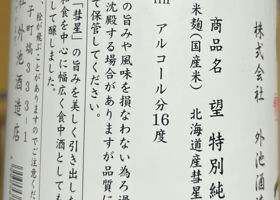 株式会社 外池酒造
商品名 望 特別純
米麹(国産米) 北海道産彗星
アルコール分16度
の旨みや風味を損なわない為ろ過
沈殿する場合がありますが品質に
て保管してください。
「彗星」の旨みを美しく引き出した
和食を中心に幅広く食中酒としても
して醸しました。
栓が飛ぶことがありますのでご注意くだ
子町塙333-1
外池酒造店